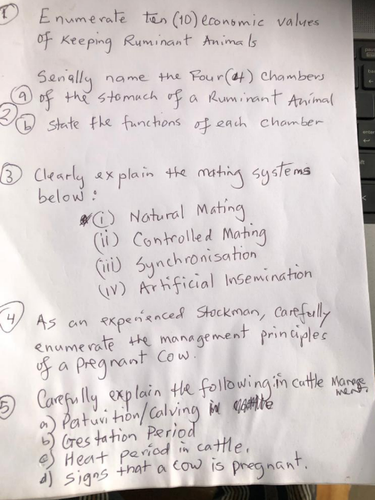 1 Enumerate ten (10) economic values
of Keeping Ruminant Animals
Serially name the Four (4) Chambers
2 a of the stomach of a Ruminant Animal
b State the functions of each chamber
3 Clearly explain the mating systems
below:
(i) Natural Mating
(ii) Controlled Mating
(iii) Synchronisation
(iv) Artificial Insemination
4 As an experienced Stockman, Carefully
enumerate the management principles
of a pregnant Cow.
5 Carefully explain the following: in cattle Manage
ment.
a) Paturition/Calving in cattle
b) Gestation Period
c) Heat period in cattle.
d) Signs that a cow is pregnant.